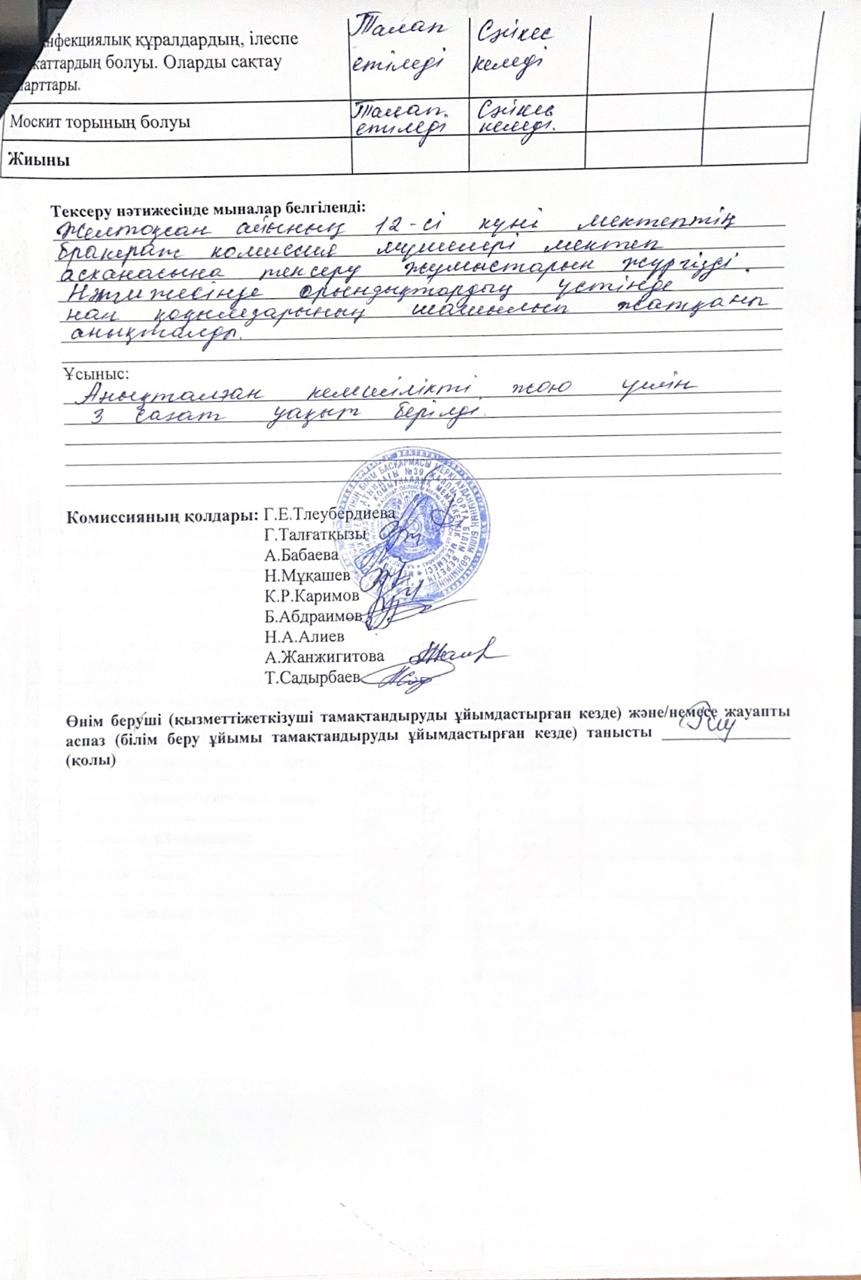 нфекциялық құралдардың, ілеспе
жаттардың болуы. Оларды сақтау
арттары.
Талап етіледі
Сәйкес келеді
Москит торының болуы
Талап етіледі
Сәйкес келеді.
Жиыны
Тексеру нәтижесінде мыналар белгіленді:
Желтоқсан айының 12-сі күні мектептің
бракераж комиссия мүшелері мектеп
асханасына тексеру жұмыстарын жүргізді.
Нәтижесінде орындықтардың үстінде
нан қоқымдарының шашылып жатқаны
анықталды.
Ұсыныс:
Анықталған кемшілікті жою үшін
3 сағат уақыт берілді.
Комиссияның қолдары: Г.Е.Тлеубердиева
Г.Талғатқызы
А.Бабаева
Н.Мұқашев
К.Р.Каримов
Б.Абдраимов
Н.А.Алиев
А.Жанжигитова
Т.Садырбаев
Өнім беруші (қызметтіжеткізуші тамақтандыруды ұйымдастырған кезде) және/немесе жауапты
аспаз (білім беру ұйымы тамақтандыруды ұйымдастырған кезде) танысты
(қолы)